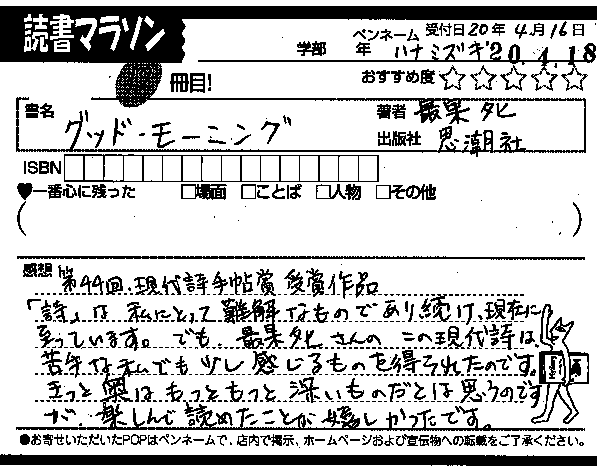 読書マラソン
ペンネーム 受付日20年4月16日
学部 年 ハナミズキ '20.4.18
冊目! おすすめ度☆☆☆☆☆
書名 グッド・モーニング 著者 最果タヒ
出版社 思潮社
ISBN
♥一番心に残った □場面 □ことば □人物 □その他
( )
感想 第44回、現代詩手帖賞 受賞作品
「詩」は 私にとって 難解なものであり続け、現在に
至っています。でも、最果タヒさんの この現代詩は、
苦手な私でも 少し感じるものを得られたのです。
きっと 奥は もっともっと 深いものだとは思うのです
が、楽しんで読めたことが嬉しかったです。
●お寄せいただいたPOPはペンネームで、店内で掲示、ホームページおよび宣伝物への転載をご了承ください。